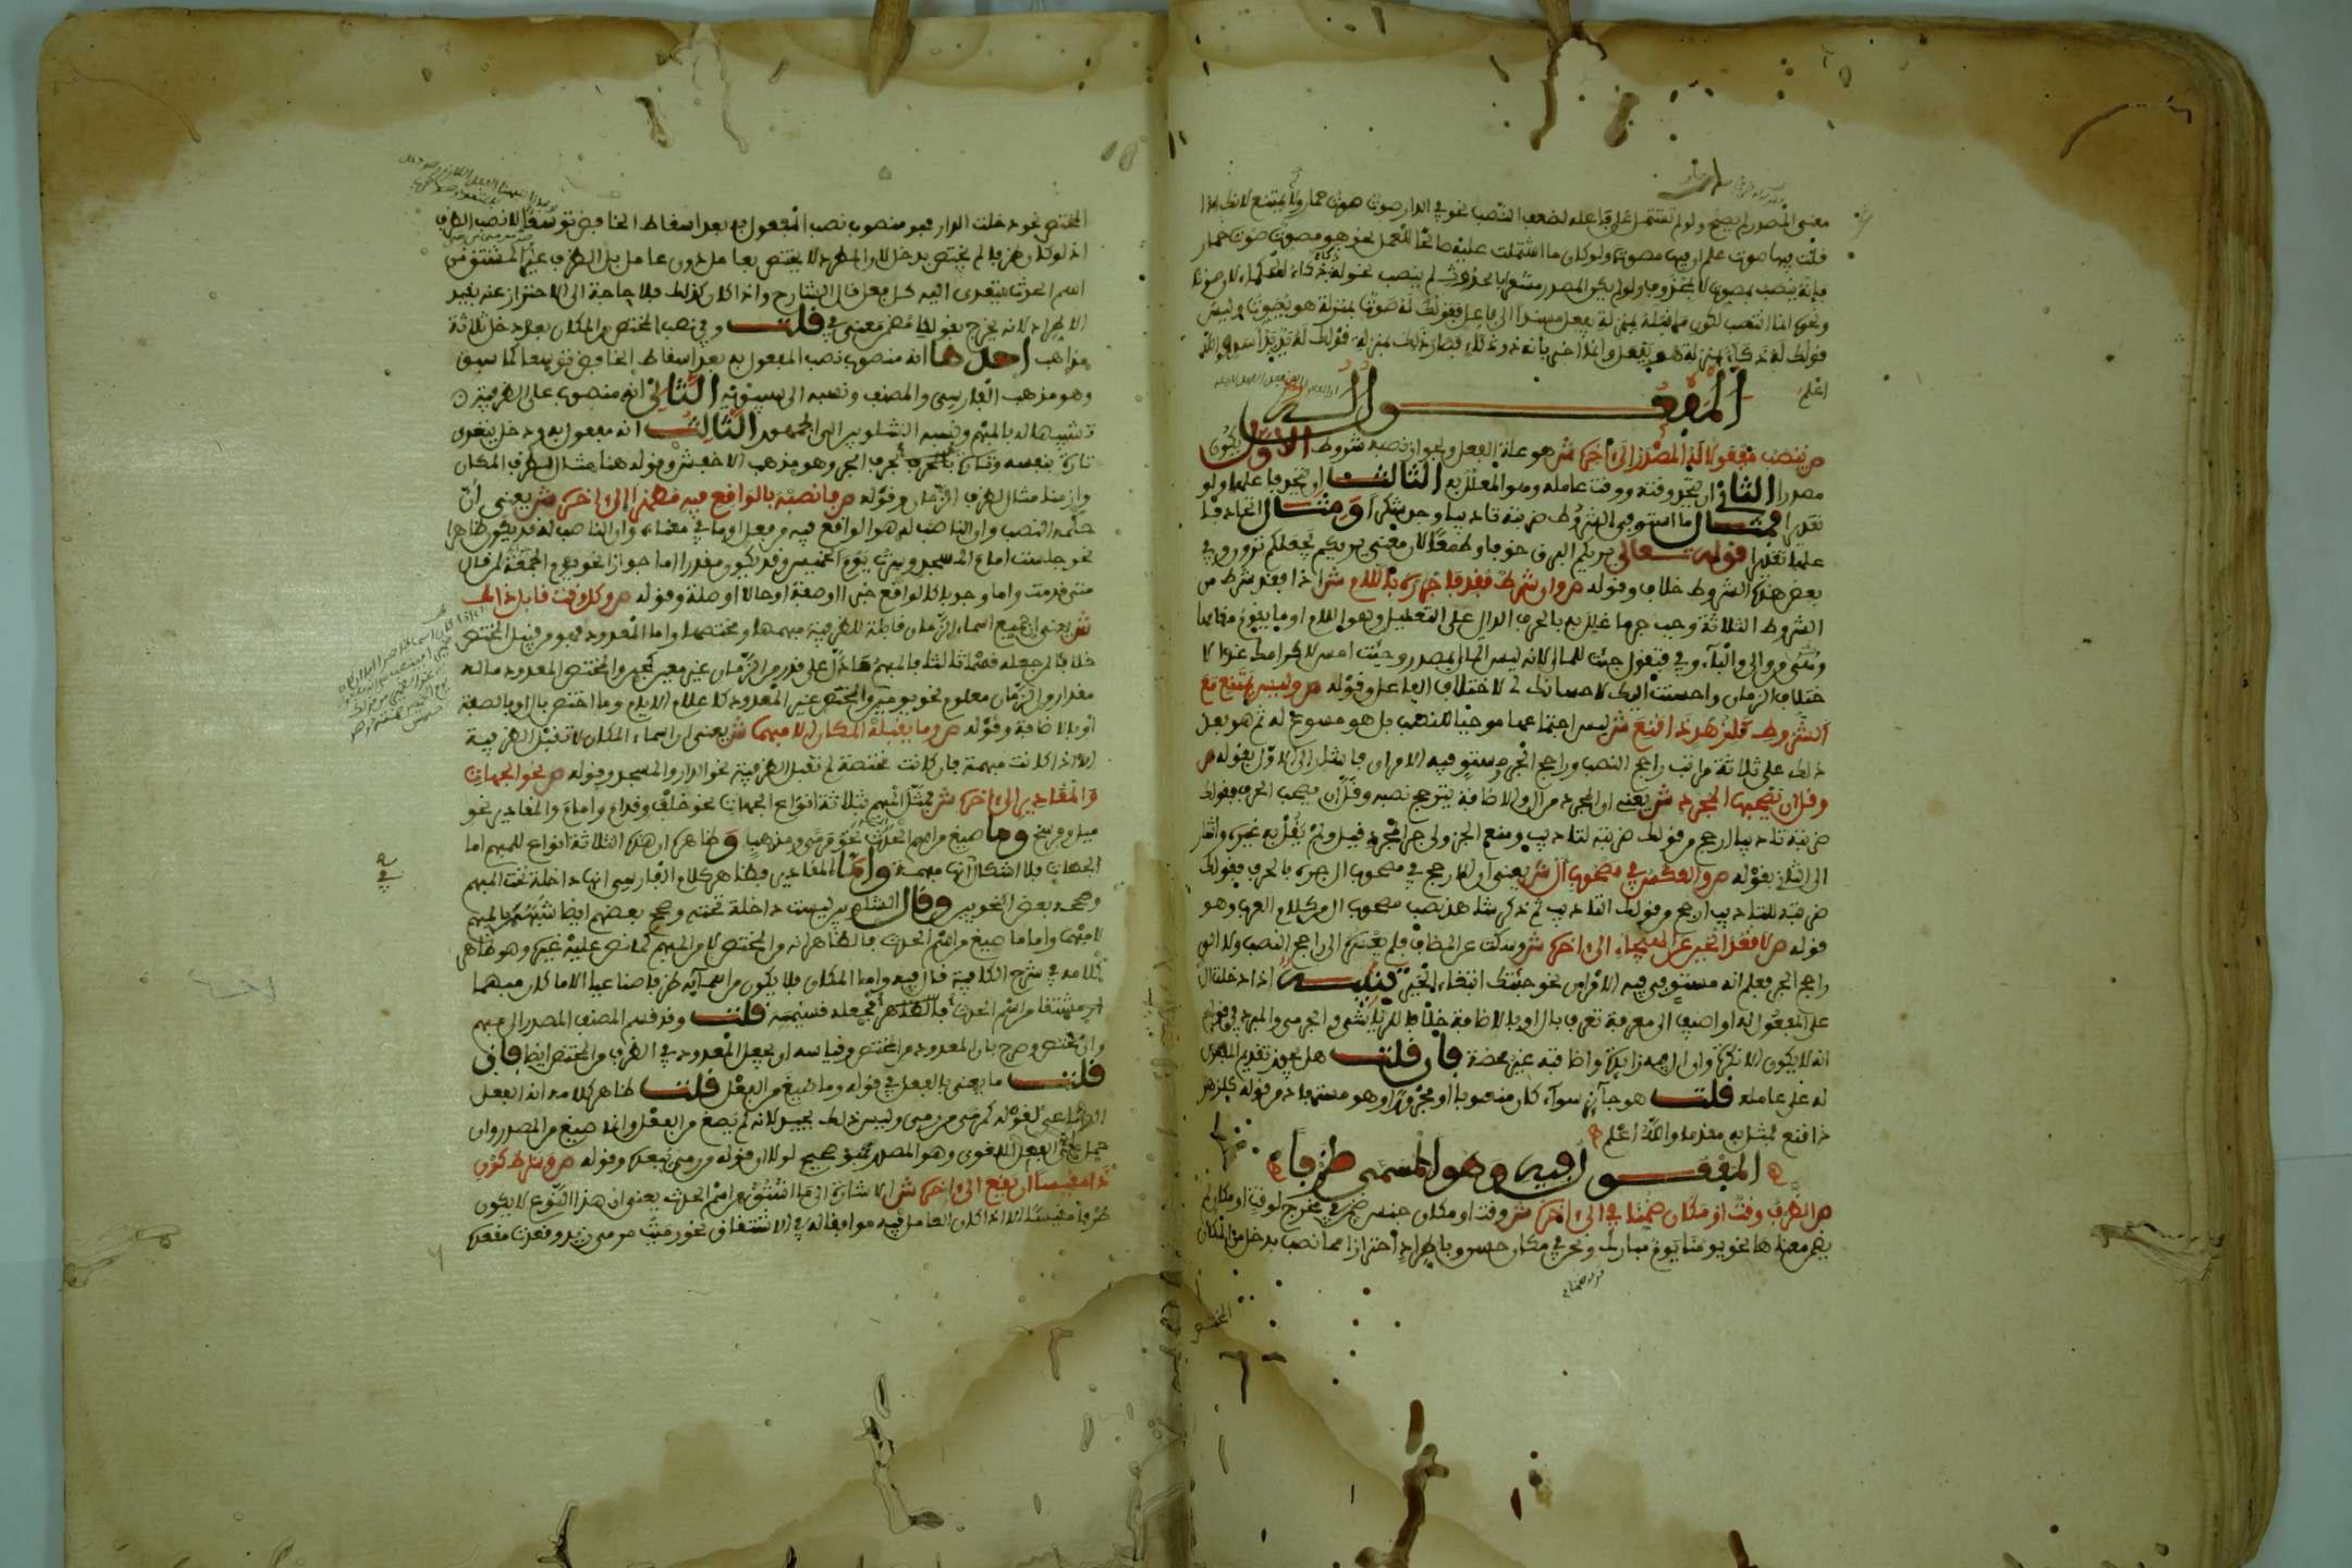 معنى المصدر لم يصح ولو لم تشتمل على فاعله لضعف النصب نحو في الدار صوت صوت حمار ولا يمتنع لانك اذا
قلت فيها صوت علم ان فيها مصوتا ولو كان ما اشتملت عليه صالحا للعمل نحو هو مصوت صوت حمار
فإنه ينصب بمصوت لا بمحذوف ولو لم يكن المصدر مشعرا بالحدوث لم ينصب نحو له ذكاء ذكاء الحكماء لان صوتا
ونحوه انما انتصب لكون ما قبله بمنزلة يفعل مسندا الى فاعل فقولك له صوت بمنزلة هو يصوت وليس
قولك له ذكاء بمنزلة هو يفعل وانما اخبر بانه ذو ذكاء فصار ذلك بمنزلة قولك له يد يد اسد والله
اعلم
المفعول له
ص ينصب مفعولا له المصدر الى اخره ش هو علة الفعل ولجواز نصبه شروط الاول ان يكون
مصدرا الثاني ان يتحد وقته ووقت عامله وهو المعلل به الثالث ان يتحد فاعلهما ولو
تقديرا فمثال ما استوفى الشروط ضربته تاديبا وجد شكرا ومثال اتحاد فا
علهما تقديرا قوله تعالى يريكم البرق خوفا وطمعا لان معنى يريكم يجعلكم ترون وفي
بعض هذه الشروط خلاف وقوله ص وان شرط فقد فاجرره باللام ش اذا فقد شرط من
الشروط الثلاثة وجب جر ما علل به بالحرف الدال على التعليل وهو اللام او ما يقوم مقامها
وهو من والى والباء وفي فتقول جئت للمال لانه ليس المال بمصدر وجئت امس لاكرامك غدا لا
ختلاف الزمان واحسنت اليك لاحسانك لي لاختلاف الفاعل وقوله ص وليس يمتنع مع
الشروط كلزهد ذا قنع ش ليس اجتماعها موجبا للنصب بل هو مسوغ له ثم هو بعد
ذلك على ثلاثة مراتب راجح النصب وراجح الجر ومستو فيه الامران فاشار الى الاول بقوله ص
وقل ان يصحبها المجرد ش يعني ان المجرد من ال والاضافة يترجح نصبه وقل ان يصحب الحرف فقولك
ضربته تاديبا ارجح من قولك ضربته لتاديب ومنع الجزولي جر المجرد قيل ولم يقل به غيره واشار
الى الثاني بقوله ص والعكس في مصحوب ال ش يعني ان الارجح في مصحوب ال جره بالحرف فقولك
ضربته للتاديب ارجح من قولك التاديب ثم ذكر شاهد نصب مصحوب ال من كلام العرب وهو
قوله ص لا اقعد الجبن عن الهيجاء الى اخره ش وسكت عن المضاف فلم يعزه الى راجح النصب ولا الى
راجح الجر فعلم انه مستو فيه الامران نحو جئتك ابتغاء الخير تنبيه اذا دخلت ال
على المفعول له او اضيف الى معرفة تعرف بال او بالاضافة خلافا للرياشي والجرمي والمبرد في قولهم
انه لا يكون الا نكرة وان ال فيه زائدة واضافته غير محضة فان قلت هل يجوز تقديم المفعول
له على عامله قلت هو جائز سواء كان منصوبا او مجرورا وهو مستفاد من قوله كلزهد
ذا قنع لمثل به مقدما والله اعلم
المفعول فيه وهو المسمى ظرفا
ص الظرف وقت او مكان ضمنا في الى اخره ش وقت او مكان جنس ضمن في مخرج لوقت او مكان لم
يضمن معناها نحو يومنا يوم مبارك ونحن في مكان حسن وباطراد احترازا مما نصب بدخل من المكان
المختص
المختص نحو دخلت الدار فهو منصوب نصب المفعول به بعد اسقاط الخافض توسعا لا نصب الظرف
اذ لو كان ظرفا لم يختص بدخل لان المطرد لا يختص بعامل دون عامل بل الظرف غير المشتق من
اسم الحدث يتعدى اليه كل فعل قال الشارح واذا كان كذلك فلا حاجة الى الاحتراز عنه بقيد
الاطراد لانه يخرج بقولنا مضمن معنى في قلت وفي نصب المختص من المكان بعد دخل ثلاثة
مذاهب احدها انه منصوب نصب المفعول به بعد اسقاط الخافض توسعا كما سبق
وهو مذهب الفارسي والمصنف ونسبه الى سيبويه الثاني انه منصوب على الظرفية
تشبيها له بالمبهم ونسبه الشلوبين الى الجمهور الثالث انه مفعول به ودخل يتعدى
تارة بنفسه وتارة بالحرف بحرف الجر وهو مذهب الاخفش وقوله هنا مثال الظرف المكان
وازمنا مثال الظرف الزمان وقوله ص فانصبه بالواقع فيه مظهرا الى اخره ش يعني ان
حكمه النصب وان الناصب له هو الواقع فيه من فعل او ما في معناه وان الناصب له قد يكون ظاهرا
نحو جلست امام المسجد وسرت يوم الخميس وقد يكون مقدرا اما جوازا نحو يوم الجمعة لمن قال
متى قدمت واما وجوبا كالواقع خبرا او صفة او حالا او صلة وقوله ص وكل وقت قابل ذاك
ش يعني ان جميع اسماء الزمان قابلة للظرفية مبهمها ومختصها واما المعدود فهو من قبيل المختص
خلافا لمن جعله قسما ثالثا فالمبهم ما دل على قدر من الزمان غير معين كحين والمختص المعدود ما له
مقدار من الزمان معلوم نحو يومين والمختص غير المعدود كاعلام الايام وما اختص بال او بالصفة
او بالاضافة وقوله ص وما يقبله المكان الا مبهما ش يعني ان اسماء المكان لا تقبل الظرفية
الا اذا كانت مبهمة فان كانت مختصة لم تقبل الظرفية نحو الدار والمسجد وقوله ص نحو الجهات
والمقادير الى اخره ش مثل المبهم بثلاثة انواع الجهات نحو خلف وقدام وامام والمقادير نحو
ميل وفرسخ وما صيغ من اسم الحدث نحو مرمى ومذهب وظاهره ان هذه الثلاثة انواع للمبهم اما
الجهات فلا اشكال انها مبهمة واما المقادير فظاهر كلام الفارسي انها داخلة تحت المبهم
وصححه بعض النحويين وقال الشلوبين ليست داخلة تحته وصحح بعضهم ايضا شبهها بالمبهم
لا مبهما واما ما صيغ من اسم الحدث فالظاهر انه من المختص لا من المبهم كما نص عليه غيره وهو ظاهر
كلامه في شرح الكافية قال فيه واما المكان فلا يكون من اسمائه ظرفا صناعيا الا ما كان مبهما
او مشتقا من اسم الحدث فالظاهر بجعله قسيمه قلت وقد قسم المصنف المصدر الى مبهم
والى مختص وصرح بان المعدود من المختص وقياسه ان يجعل المعدود في الظرف من المختص ايضا فان
قلت ما يعني بالفعل في قوله وما صيغ من الفعل قلت ظاهر كلامه انه الفعل
الصناعي لقوله كمرمى من رمى وليس ذلك بجيد لانه لم يصغ من الفعل وانما صيغ من المصدر وان
حمل على الفعل اللغوي وهو المصدر فهو صحيح لولا ان قوله من رمى يبعده وقوله ص وشرط كون
ذا مقيسا ان يقع الى اخره ش الاشارة الى ما اشتق من اسم الحدث يعني ان هذا النوع لا يكون
ظرفا مقيسا الا اذا كان العامل فيه موافقا له في الاشتقاق نحو رميت مرمى زيد وقعدت مقعده